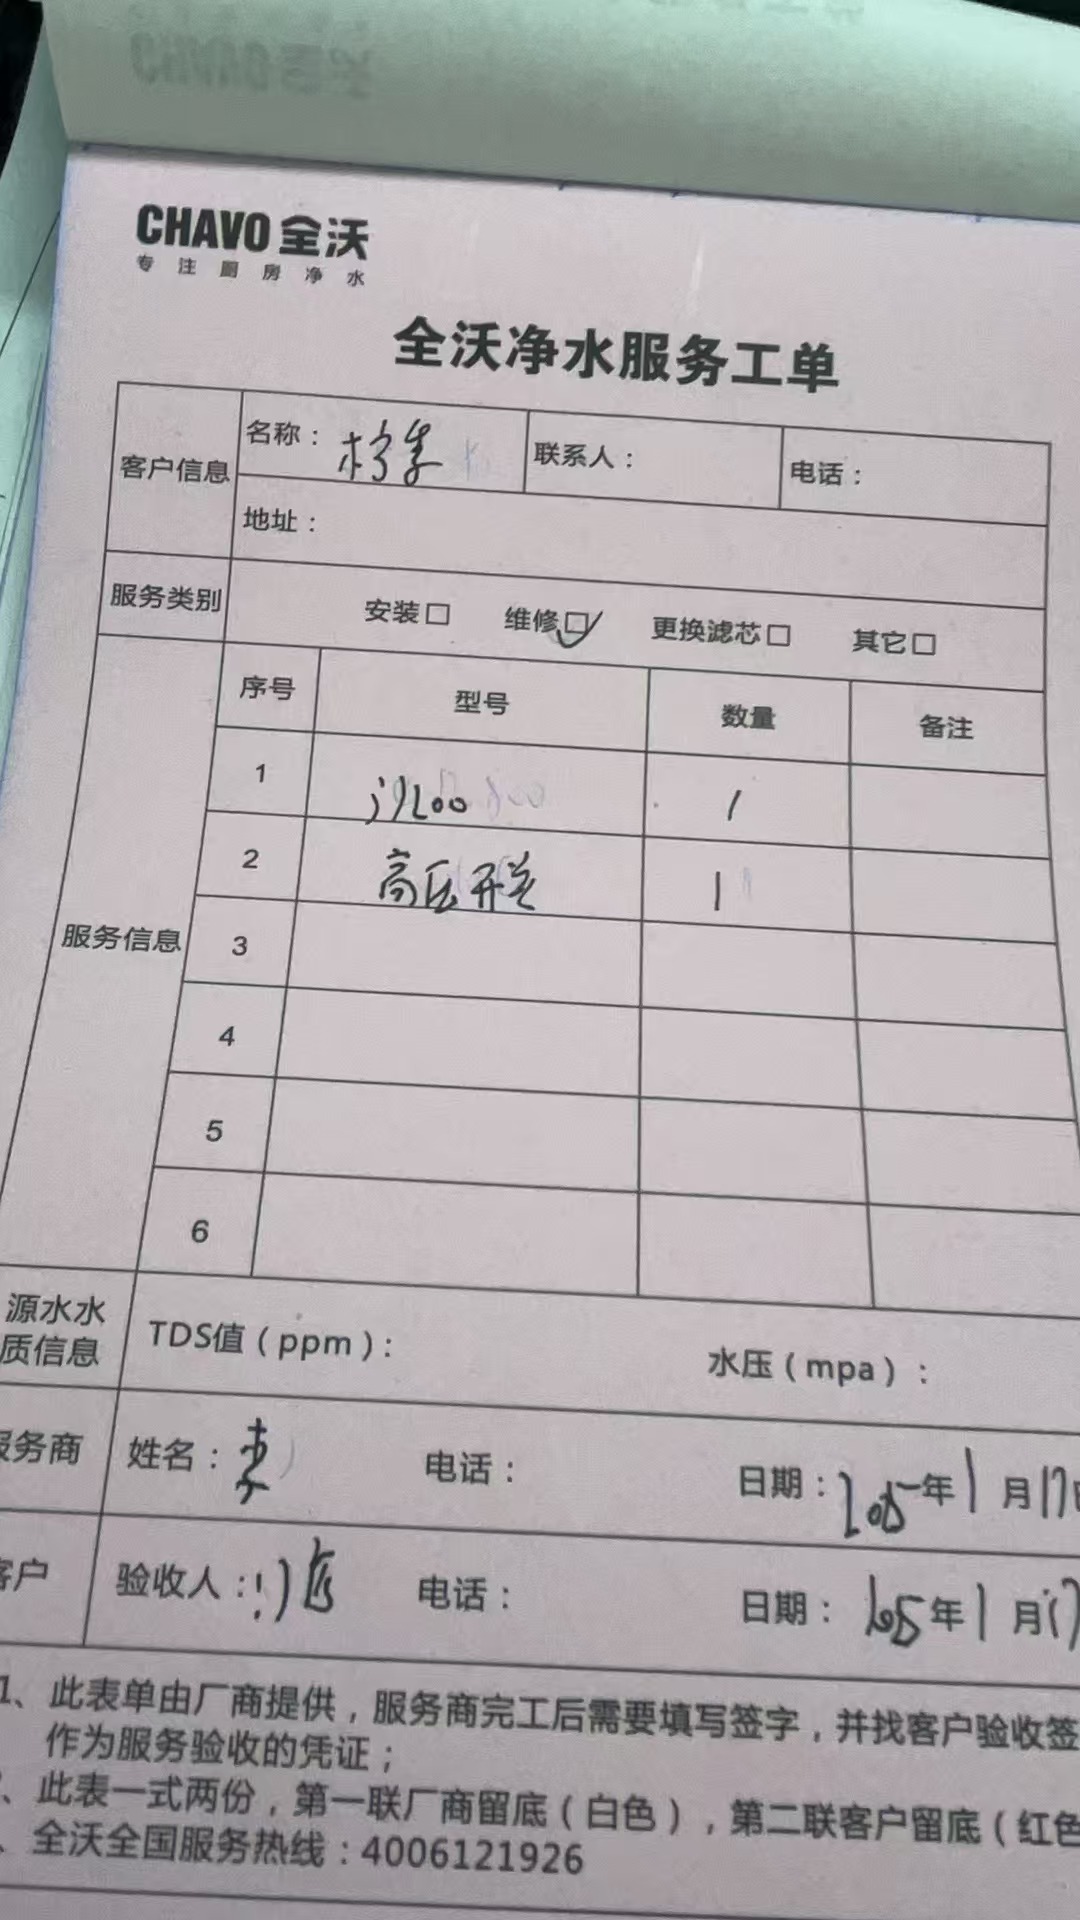 CHAVO 全沃
专注厨房净水
全沃净水服务工单
客户信息 名称： 柠季 联系人： 电话：
地址：
服务类别 安装□ 维修☑ 更换滤芯□ 其它□
服务信息 序号 型号 数量 备注
1 1
2 高压开关 1
3
4
5
6
源水水
质信息 TDS值（ppm）： 水压（mpa）：
服务商 姓名： 电话： 日期：2025年1月17日
客户 验收人： 电话： 日期：2025年1月17
1、此表单由厂商提供，服务商完工后需要填写签字，并找客户验收签
作为服务验收的凭证；
、此表一式两份，第一联厂商留底（白色），第二联客户留底（红色
、全沃全国服务热线：4006121926